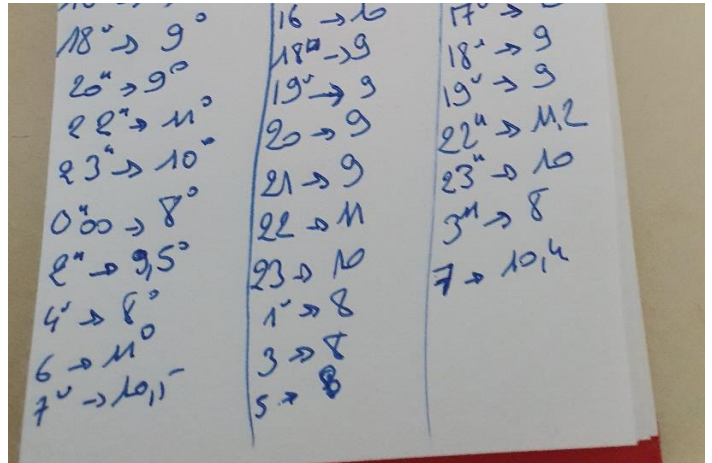 18ʰ → 9°
20ʰ → 9°
22ʰ → 11°
23ʰ → 10°
0ʰ00 → 8°
2ʰ → 9,5°
4ʰ → 8°
6 → 11°
7ʰ → 10,5
16 → 10
18ʰ → 9
19ʰ → 9
20 → 9
21 → 9
22 → 11
23 → 10
1ʰ → 8
3 → 8
5 → 8
17ʰ →
18ʰ → 9
19ʰ → 9
22ʰ → 11,2
23ʰ → 10
3ʰ → 8
7 → 10,4